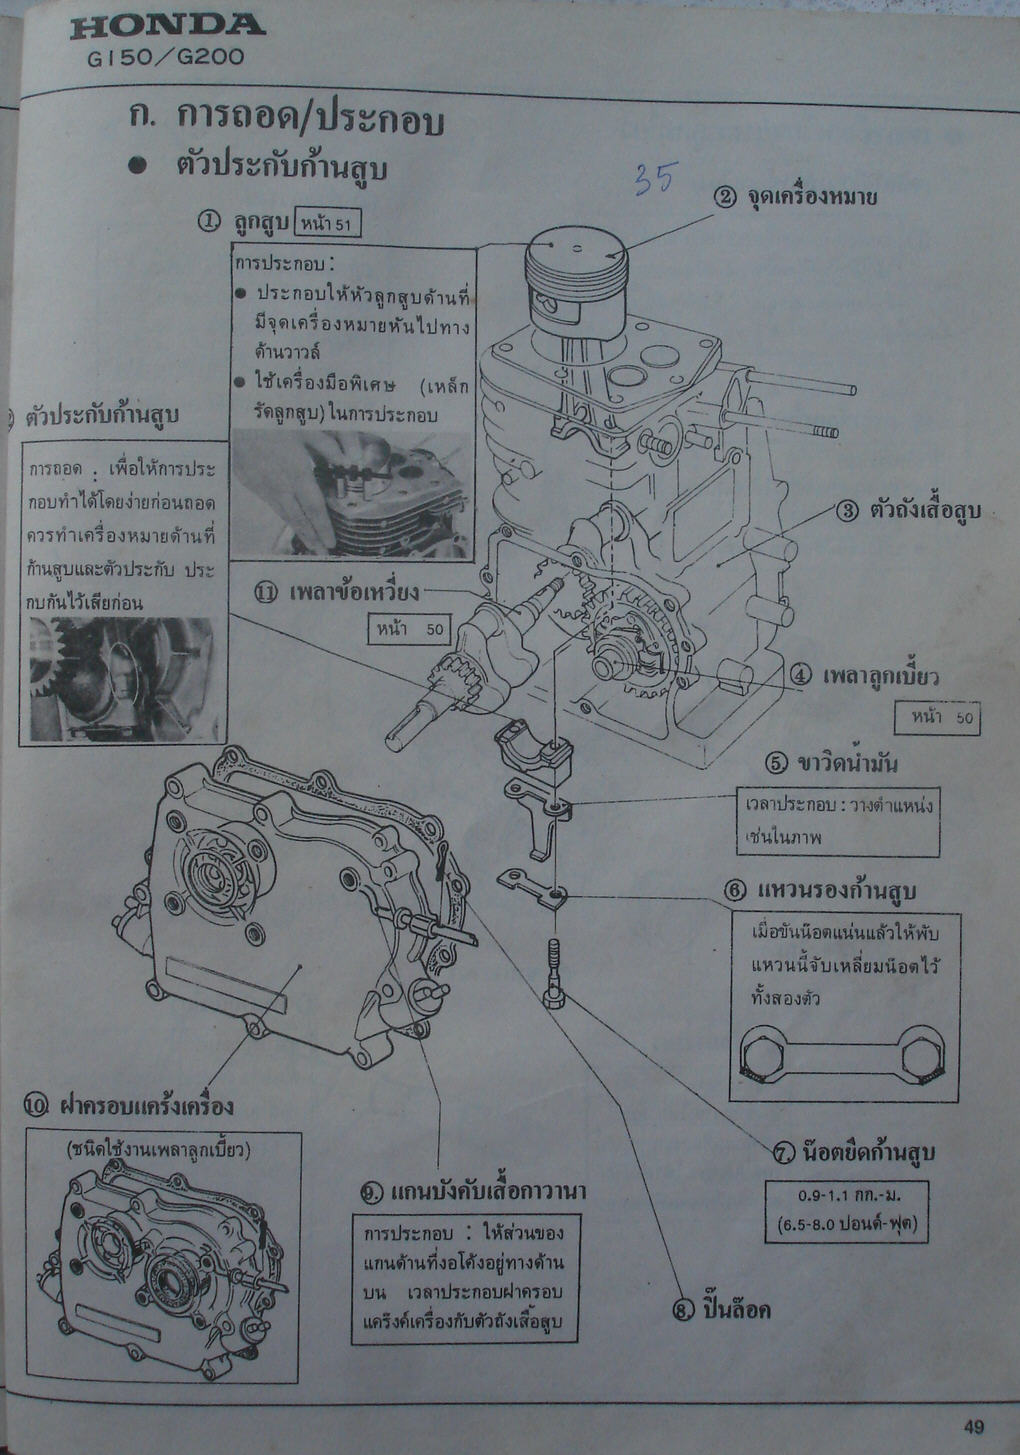 HONDA
G150/G200
ก. การถอด/ประกอบ
● ตัวประกับก้านสูบ
35
② จุดเครื่องหมาย
① ลูกสูบ หน้า 51
การประกอบ :
● ประกอบให้หัวลูกสูบด้านที่
มีจุดเครื่องหมายหันไปทาง
ด้านวาวล์
● ใช้เครื่องมือพิเศษ (เหล็ก
รัดลูกสูบ) ในการประกอบ
ตัวประกับก้านสูบ
การถอด : เพื่อให้การประ
กอบทำได้โดยง่ายก่อนถอด
ควรทำเครื่องหมายด้านที่
ก้านสูบและตัวประกับ ประ
กบกันไว้เสียก่อน
③ ตัวถังเสื้อสูบ
⑪ เพลาข้อเหวี่ยง
หน้า 50
④ เพลาลูกเบี้ยว
หน้า 50
⑤ ขาวิดน้ำมัน
เวลาประกอบ : วางตำแหน่ง
เช่นในภาพ
⑥ แหวนรองก้านสูบ
เมื่อขันน๊อตแน่นแล้วให้พับ
แหวนนี้จับเหลี่ยมน๊อตไว้
ทั้งสองตัว
⑩ ฝาครอบแคร้งเครื่อง
(ชนิดใช้งานเพลาลูกเบี้ยว)
⑦ น๊อตยึดก้านสูบ
0.9-1.1 กก.-ม.
(6.5-8.0 ปอนด์-ฟุต)
⑨ แกนบังคับเสื้อกาวานา
การประกอบ : ให้ส่วนของ
แกนด้านที่งอโค้งอยู่ทางด้าน
บน เวลาประกอบฝาครอบ
แคร๊งค์เครื่องกับตัวถังเสื้อสูบ
⑧ ปิ๊นล๊อค
49